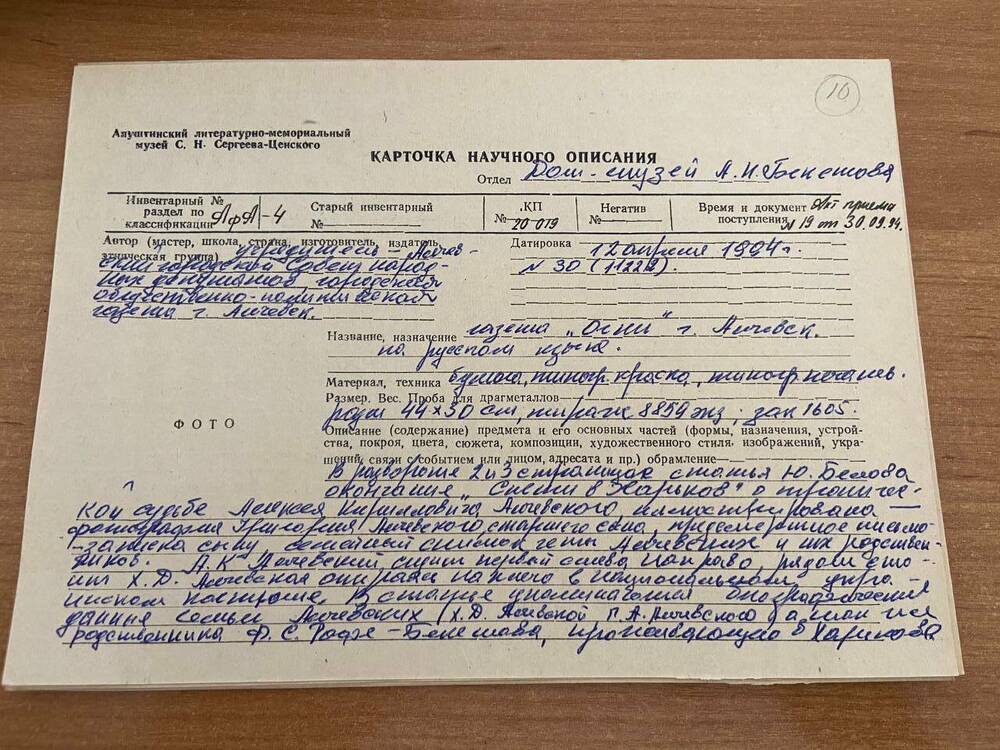 10
Алуштинский литературно-мемориальный
музей С. Н. Сергеева-Ценского
КАРТОЧКА НАУЧНОГО ОПИСАНИЯ
Отдел Дом-музей А.Н. Бекетова
Инвентарный №
раздел по
классификации АфА-4
Старый инвентарный
№
КП
№ 20 019
Негатив
№
Время и документ Акт приема
поступления № 19 от 30.09.94.
Автор (мастер, школа, страна, изготовитель, издатель,
этническая группа) учредитель Алчев-
ский городской Совет народ-
ных депутатов, городская
общественно-политическая
газета г. Алчевск.
Датировка 12 апреля 1994 г.
№ 30 (11222).
Название, назначение газета „Огни" г. Алчевск.
на русском языке.
Материал, техника бумага, типогр. краска, типогр. печать.
Размер. Вес. Проба для драгметаллов
44×30 см, тираж 8859 экз, зак 1605.
ФОТО
Описание (содержание) предмета и его основных частей (формы, назначения, устрой-
ства, покроя, цвета, сюжета, композиции, художественного стиля изображений, укра-
шений, связи с событием или лицом, адресата и пр.) обрамление
В развороте 2 и 3 страницах статья Ю. Белова
окончание „Спети в Харьков" о трагичес-
кой судьбе Алексея Кирилловича Алчевского, иллюстрирована —
фотография Григория Алчевского старшего сына, предсмертное письмо-
записка сыну, семейный снимок четы Алчевских и их родствен-
ников. А.К Алчевский сидит первый слева направо, рядом сто-
ит Х.Д. Алчевская опираясь на него в национальном укра-
инском костюме. В статье упоминаются биографические
данные семьи Алчевских (Х.Д. Алчевской Г.А. Алчевского а также
родственника Ф.С. Рофе-Бекетова, проживающего в Харькове